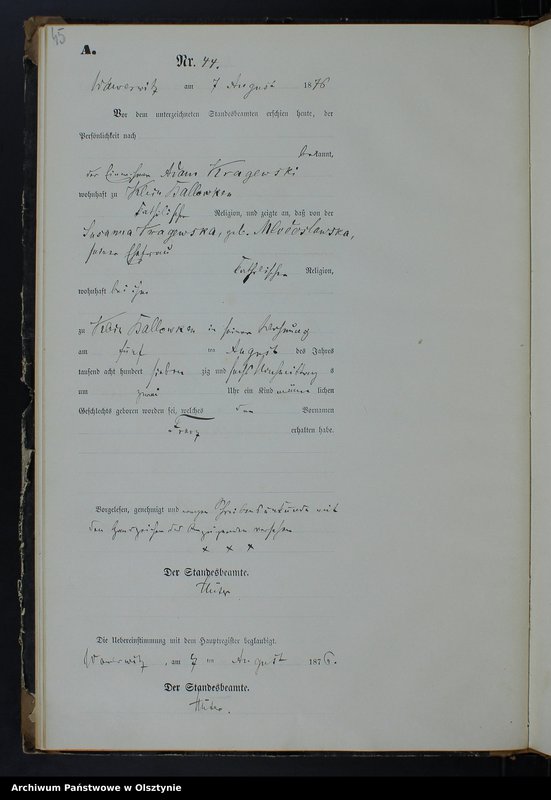 45
A.
Nr. 44.
am 7 August 1876
Vor dem unterzeichneten Standesbeamten erschien heute, der
Persönlichkeit nach
bekannt,
der Einwohner Adam Kragewski
wohnhaft zu Klein Ballowken
katholischer Religion, und zeigte an, daß von der
Susanna Kragewska, geb.
seiner Ehefrau
katholischen Religion,
wohnhaft bei ihm
zu Klein Ballowken in seiner Wohnung
am fünf ten August des Jahres
tausend acht hundert sieben zig und sechs Nachmittag s
um zwei Uhr ein Kind männ lichen
Geschlechts geboren worden sei, welches den Vornamen
Franz
erhalten habe.
Vorgelesen, genehmigt und wegen mit
dem Handzeichen des Anzeigenden versehen
x x x
Der Standesbeamte.
Die Uebereinstimmung mit dem Hauptregister beglaubigt.
, am 7 ten August 1876.
Der Standesbeamte.
Archiwum Państwowe w Olsztynie